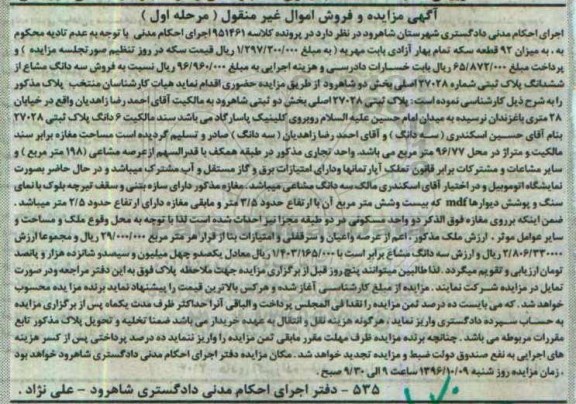 آگهی مزایده و فروش اموال غیر منقول ( مرحله اول )
اجرای احکام مدنی دادگستری شهرستان شاهرود در نظر دارد در پرونده کلاسه ۹۵۱۴۶۱ اجرای احکام مدنی با توجه به عدم تادیه محکوم
به ، به میزان ۹۲ قطعه سکه تمام بهار آزادی بابت مهریه ( به مبلغ ۱/۲۹۷/۲۰۰/۰۰۰ ریال قیمت سکه در روز تنظیم صورتجلسه مزایده ) و
پرداخت مبلغ ۶۵/۸۷۲/۰۰۰ ریال بابت خسارات دادرسی و هزینه اجرایی به مبلغ ۹۶/۹۶۰/۰۰۰ ریال نسبت به فروش سه دانگ مشاع از
ششدانگ پلاک ثبتی شماره ۲۷۰۲۸ اصلی بخش دو شاهرود از طریق مزایده حضوری اقدام نماید هیات کارشناسان منتخب پلاک مذکور
را به شرح ذیل کارشناسی نموده است: پلاک ثبتی ۲۷۰۲۸ اصلی بخش دو ثبتی شاهرود به مالکیت آقای احمد رضا زاهدیان واقع در خیابان
۲۸ متری باغزندان نرسیده به میدان امام حسین علیه السلام روبروی کلینیک پاسارگاد می باشد سند مالکیت ۶ دانگ پلاک ثبتی ۲۷۰۲۸
بنام آقای حسین اسکندری ( سه دانگ ) و آقای احمد رضا زاهدیان ( سه دانگ ) صادر و تسلیم گردیده است مساحت مغازه برابر سند
مالکیت و متراژ در محل ۹۶/۷۷ متر مربع می باشد. واحد تجاری مذکور در طبقه همکف با قدرالسهم از عرصه مشاعی (۱۹۸ متر مربع ) و
سایر مشاعات و مشترکات برابر قانون تملک آپارتمانها و دارای امتیازات برق و گاز مستقل و آب مشترک میباشد و در حال حاضر بصورت
نمایشگاه اتوموبیل و در اختیار آقای اسکندری مالک سه دانگ مشاعی میباشد. مغازه مذکور دارای سازه بتنی و سقف تیرچه بلوک با نمای
سنگ و پوشش دیوارها mdf که بیست وشش متر مربع آن با ارتفاع حدود ۳/۵ متر و مابقی مغازه دارای ارتفاع حدود ۲/۵ متر میباشد.
ضمن اینکه برروی مغازه فوق الذکر دو واحد مسکونی در دو طبقه مجزا نیز احداث شده است لذا با توجه به محل وقوع ملک و مساحت و
سایر عوامل موثر ، ارزش ملک مذکور ، اعم از عرصه واعیان و سرقفلی و امتیازات بنا از قرار هر متر مربع ۲۹/۰۰۰/۰۰۰ ریال و مجموعا ارزش
۲/۸۰۶/۳۳۰/۰۰۰ ریال و ارزش سه دانگ مشاع برابر است با ۱/۴۰۳/۱۶۵/۰۰۰ ریال معادل یکصدو چهل میلیون و سیصدو شانزده هزار و پانصد
تومان ارزیابی و تقویم میگردد .لذا طالبین میتوانند پنج روز قبل از برگزاری مزایده جهت ملاحظه پلاک فوق به این دفتر مراجعه ودر صورت
تمایل در مزایده شرکت نمایند . مزایده از مبلغ کارشناسی آغاز شده و هرکس بالاترین قیمت را پیشنهاد نماید برنده مزا یده محسوب
خواهد شد. که می بایست ده درصد ثمن مزایده را نقدا فی المجلس پرداخت و الباقی آنرا حداکثر ظرف مدت یکماه پس از برگزاری مزایده
به حساب سپرده دادگستری واریز نماید ، هرگونه هزینه نقل و انتقال به عهده خریدار می باشد ضمنا تخلیه و تحویل پلاک مذکور تابع
مقررات مربوطه می باشد. چنانچه برنده مزایده ظرف مهلت مقرر مابقی ثمن مزایده را واریز ننماید ده درصد پرداختی پس از کسر هزینه
های اجرایی به نفع صندوق دولت ضبط و مزایده تجدید خواهد شد. مکان مزایده دفتر اجرای احکام مدنی دادگستری شاهرود خواهد بود
، زمان مزایده روز شنبه ۱۳۹۶/۱۰/۰۹ ساعت ۹ الی ۹/۳۰ صبح .
۵۳۵ - دفتر اجرای احکام مدنی دادگستری شاهرود - علی نژاد .